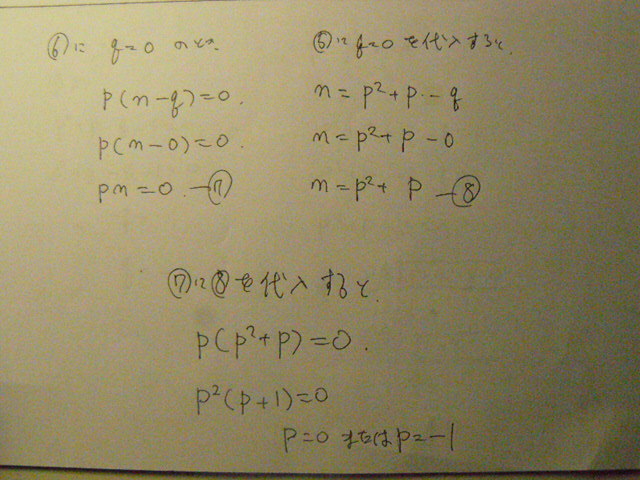 ⑥に q=0 のとき
p(n-q)=0.
p(n-0)=0.
pn=0. —⑦
⑤に q=0 を代入すると,
n=p²+p-q
n=p²+p-0
n=p²+p —⑧
⑦に⑧を代入すると,
p(p²+p)=0.
p²(p+1)=0
p=0 または p=-1